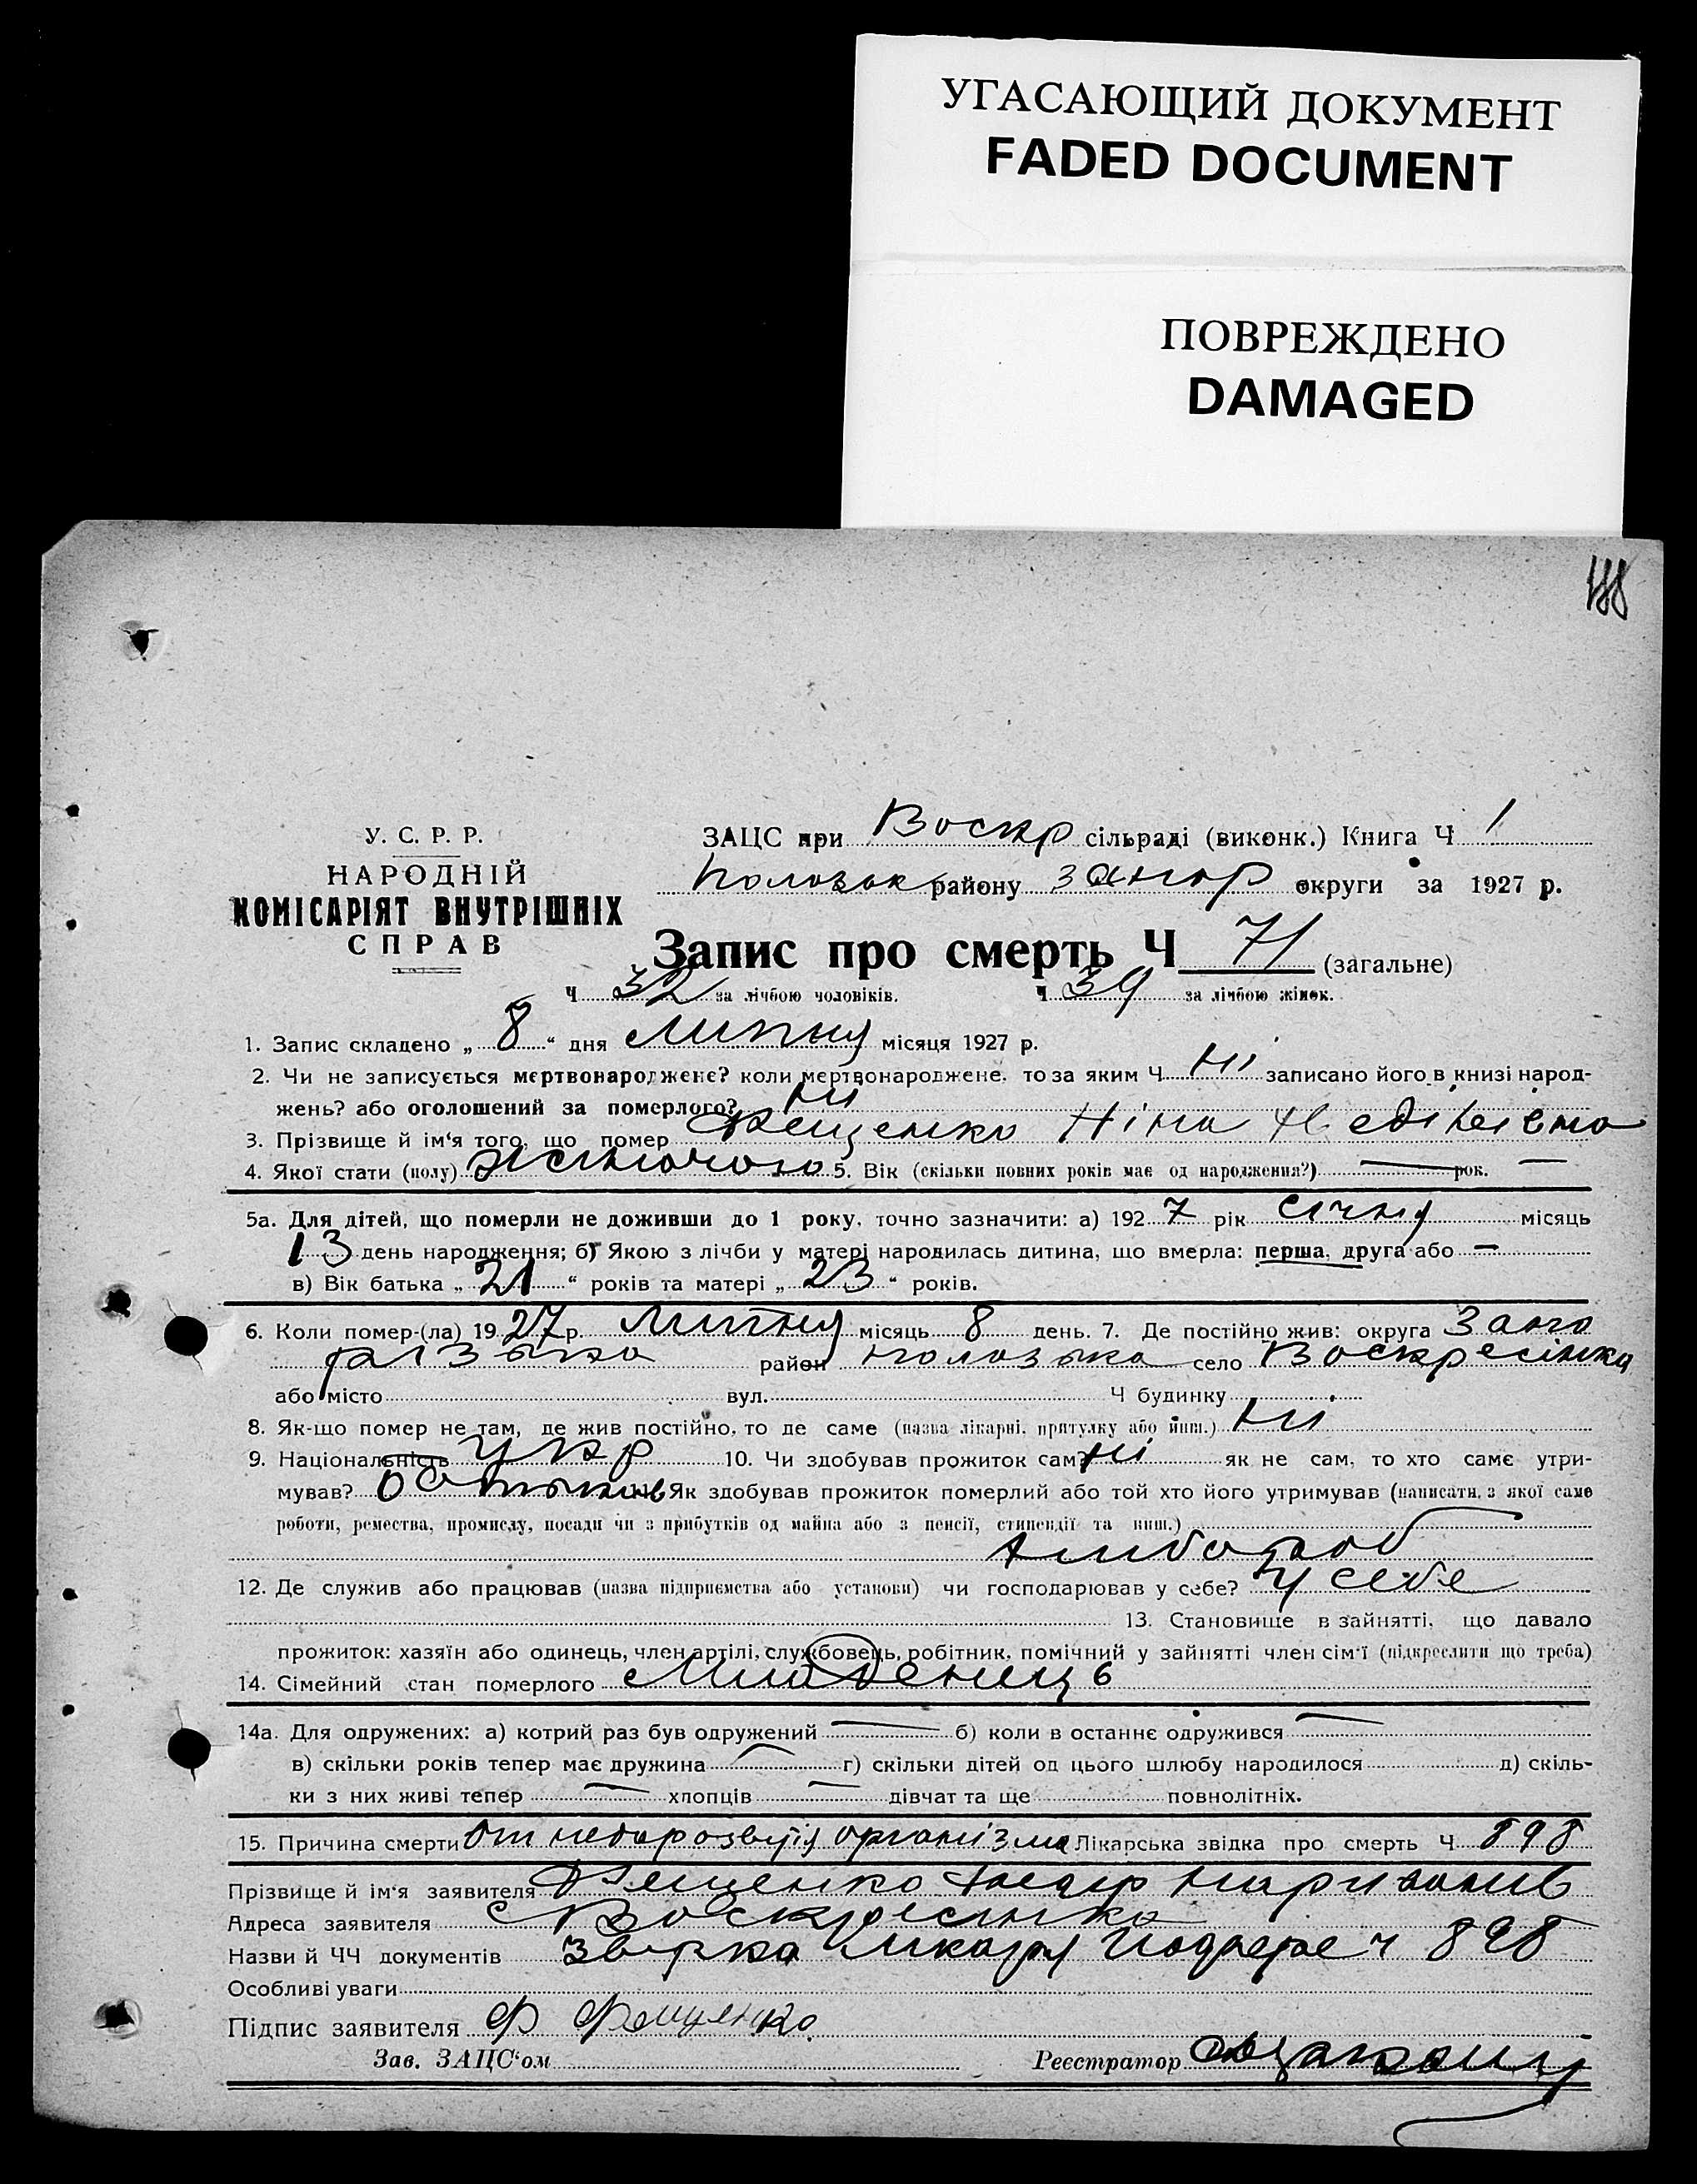 УГАСАЮЩИЙ ДОКУМЕНТ
FADED DOCUMENT
ПОВРЕЖДЕНО
DAMAGED
188
У. С. Р. Р.
НАРОДНІЙ
КОМІСАРІЯТ ВНУТРІШНІХ
СПРАВ
ЗАЦС при Воскр сільраді (виконк.) Книга Ч 1
району Запор округи за 1927 р.
Запис про смерть Ч 71 (загальне)
Ч 32 за лічбою чоловіків. Ч 39 за лічбою жінок.
1. Запис складено „ 8 “ дня Липня місяця 1927 р.
2. Чи не записується мертвонароджене? коли мертвонароджене, то за яким Ч Ні записано його в книзі народ-
жень? або оголошений за померлого? Ні
3. Прізвище й ім'я того, що помер Фещенко Ніна
4. Якої стати (полу) Жіночого 5. Вік (скільки повних років має од народження?) — рок. —
5а. Для дітей, що померли не доживши до 1 року, точно зазначити: а) 192 7 рік Січня місяць
13 день народження; б) Якою з лічби у матері народилась дитина, що вмерла: перша, друга або —
в) Вік батька „ 21 “ років та матері „ 23 “ років.
6. Коли помер-(ла) 19 27 р. Липня місяць 8 день. 7. Де постійно жив: округа Запо
різька район Пологзька село Воскресінка
або місто вул. Ч будинку
8. Як-що помер не там, де жив постійно, то де саме (назва лікарні, притулку або йнш.) Ні
9. Національність Укр 10. Чи здобував прожиток сам? Ні як не сам, то хто саме утри-
мував? батьків Як здобував прожиток померлий або той хто його утримував (написати, з якої саме
роботи, ремества, промислу, посади чи з прибутків од майна або з пенсії, стипендії та инш.)
Хлібороб
12. Де служив або працював (назва підприємства або установи) чи господарював у себе? У себе
13. Становище в зайнятті, що давало
прожиток: хазяїн або одинець, член артілі, службовець, робітник, помічний у зайнятті член сім'ї (підкреслити що треба)
14. Сімейний стан померлого Младенець
14а. Для одружених: а) котрий раз був одружений — б) коли в останнє одружився —
в) скільки років тепер має дружина — г) скільки дітей од цього шлюбу народилося д) скіль-
ки з них живі тепер — хлопців — дівчат та ще повнолітніх.
15. Причина смерти От недорозвитія організма Лікарська звідка про смерть Ч 898
Прізвище й ім'я заявителя Фещенко Федор
Адреса заявителя С Воскресінка
Назви й ЧЧ документів Звідка Лікаря ч 898
Особливі уваги
Підпис заявителя Ф Фещенко
Зав. ЗАЦС'ом Реєстратор